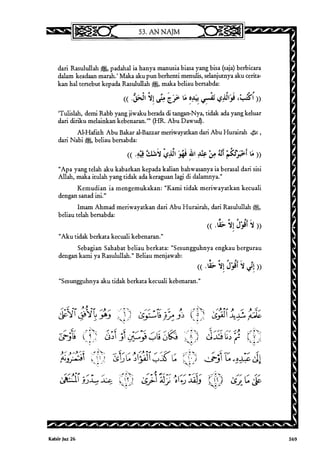 53. AN NAJM
dari Rasulullah ﷺ, padahal ia hanya manusia biasa yang bisa (saja) berbicara
dalam keadaan marah.' Maka aku pun berhenti menulis, selanjutnya aku cerita-
kan hal tersebut kepada Rasulullah ﷺ, maka beliau bersabda:
(( اُكْتُبْ، فَوَالَّذِي نَفْسِي بِيَدِهِ مَا خَرَجَ مِنِّي إِلاَّ الْحَقُّ. ))
'Tulislah, demi Rabb yang jiwaku berada di tangan-Nya, tidak ada yang keluar
dari diriku melainkan kebenaran.'" (HR. Abu Dawud).
Al-Hafizh Abu Bakar al-Bazzar meriwayatkan dari Abu Hurairah ؓ,
dari Nabi ﷺ, beliau bersabda:
(( مَا أَخْبَرْتُكُمْ أَنَّهُ مِنْ عِنْدِ اللهِ فَهُوَ الَّذِي لاَشَكَّ فِيْهِ. ))
"Apa yang telah aku kabarkan kepada kalian bahwasanya ia berasal dari sisi
Allah, maka itulah yang tidak ada keraguan lagi di dalamnya."
Kemudian ia mengemukakan: "Kami tidak meriwayatkan kecuali
dengan sanad ini."
Imam Ahmad meriwayatkan dari Abu Hurairah, dari Rasulullah ﷺ,
beliau telah bersabda:
(( لاَ أَقُوْلُ إِلاَّ حَقًّا. ))
"Aku tidak berkata kecuali kebenaran."
Sebagian Sahabat beliau berkata: "Sesungguhnya engkau bergurau
dengan kami ya Rasulullah." Beliau menjawab:
(( إِنِّي لاَ أَقُوْلُ إِلاَّ حَقًّا. ))
"Sesungguhnya aku tidak berkata kecuali kebenaran."
عَلَّمَهُ شَدِيدُ الْقُوَىٰ (٥) ذُو مِرَّةٍ فَاسْتَوَىٰ (٦) وَهُوَ بِالْأُفُقِ الْأَعْلَىٰ
(٧) ثُمَّ دَنَا فَتَدَلَّىٰ (٨) فَكَانَ قَابَ قَوْسَيْنِ أَوْ أَدْنَىٰ (٩) فَأَوْحَىٰ
إِلَىٰ عَبْدِهِ مَا أَوْحَىٰ (١٠) مَا كَذَبَ الْفُؤَادُ مَا رَأَىٰ (١١) أَفَتُمَارُونَهُ
عَلَىٰ مَا يَرَىٰ (١٢) وَلَقَدْ رَآهُ نَزْلَةً أُخْرَىٰ (١٣) عِندَ سِدْرَةِ الْمُنتَهَىٰ
Katsir Juz 26
569